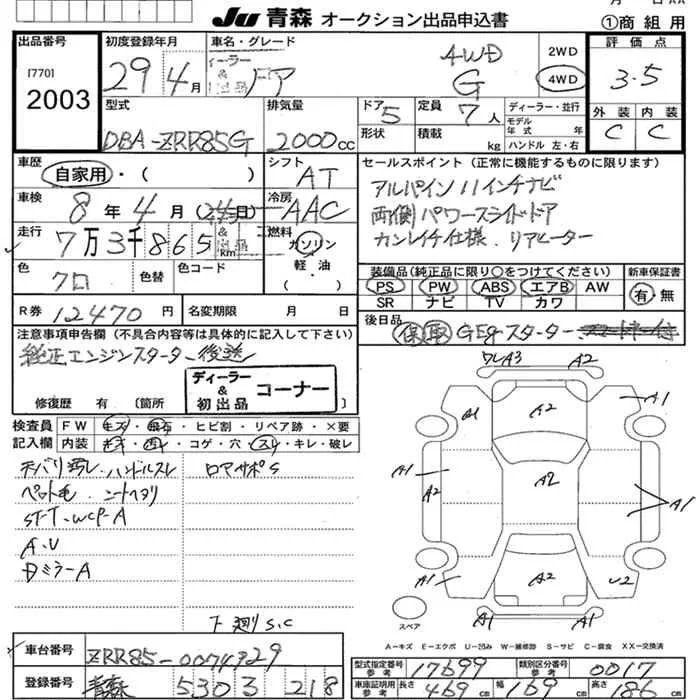 Ju 青森 オークション出品申込書 ①商 組 用
出品番号 初度登録年月 車名・グレード 評価点
[770] 2003
29年4月 ノア 4WD G 2WD 4WD 3.5
型式 排気量 ドア 5 定員 7人 ディーラー・並行 外装 内装
DBA-ZRR85G 2000cc 形状 積載 kg モデル年式 年 ハンドル 左・右 C C
車歴 自家用・( ) シフト AT セールスポイント(正常に機能するものに限ります)
車検 8年4月 冷房 AAC アルパイン11インチナビ
走行 7万3千865 km 燃料 ガソリン 両側パワースライドドア
軽油 カンレイチ仕様. リアヒーター
色 クロ 色替 色コード ( ) 装備品(純正品に限り○をつけてください) 新車保証書
PS PW ABS エアB AW 有・無
SR ナビ TV カワ
R券 12470円 名変期限 月 日 後日品 保 取 GEgースターター
注意事項申告欄(不具合内容等は具体的に記入して下さい)
純正エンジンスターター後送
ディーラー & 初出品 コーナー
修復歴 有(箇所
検査員記入欄 FW キズ・飛石・ヒビ割・リペア跡・×要
内装 キズ・汚レ・コゲ・穴・スレ・キレ・破レ
天バリ汚レ.ハンドルスレ ロアサポS
ペット毛.シートヘタリ
ST-T.WCP-A
A.U
DミラーA
下廻りS.C
ワレA3 A2
A1 A2 A1
A1 A2 A2 A1
A1 A2 U2
A1 A1
スペア
A=キズ E=エクボ U=凹み W=補修跡 S=サビ C=腐食 XX=交換済
車台番号 ZRR85-0074929
登録番号 青森 530 ス 218
型式指定番号 参考 17699 類別区分番号 参考 0017
車庫証明用 参考 長さ 469cm 幅 169cm 高さ 186cm